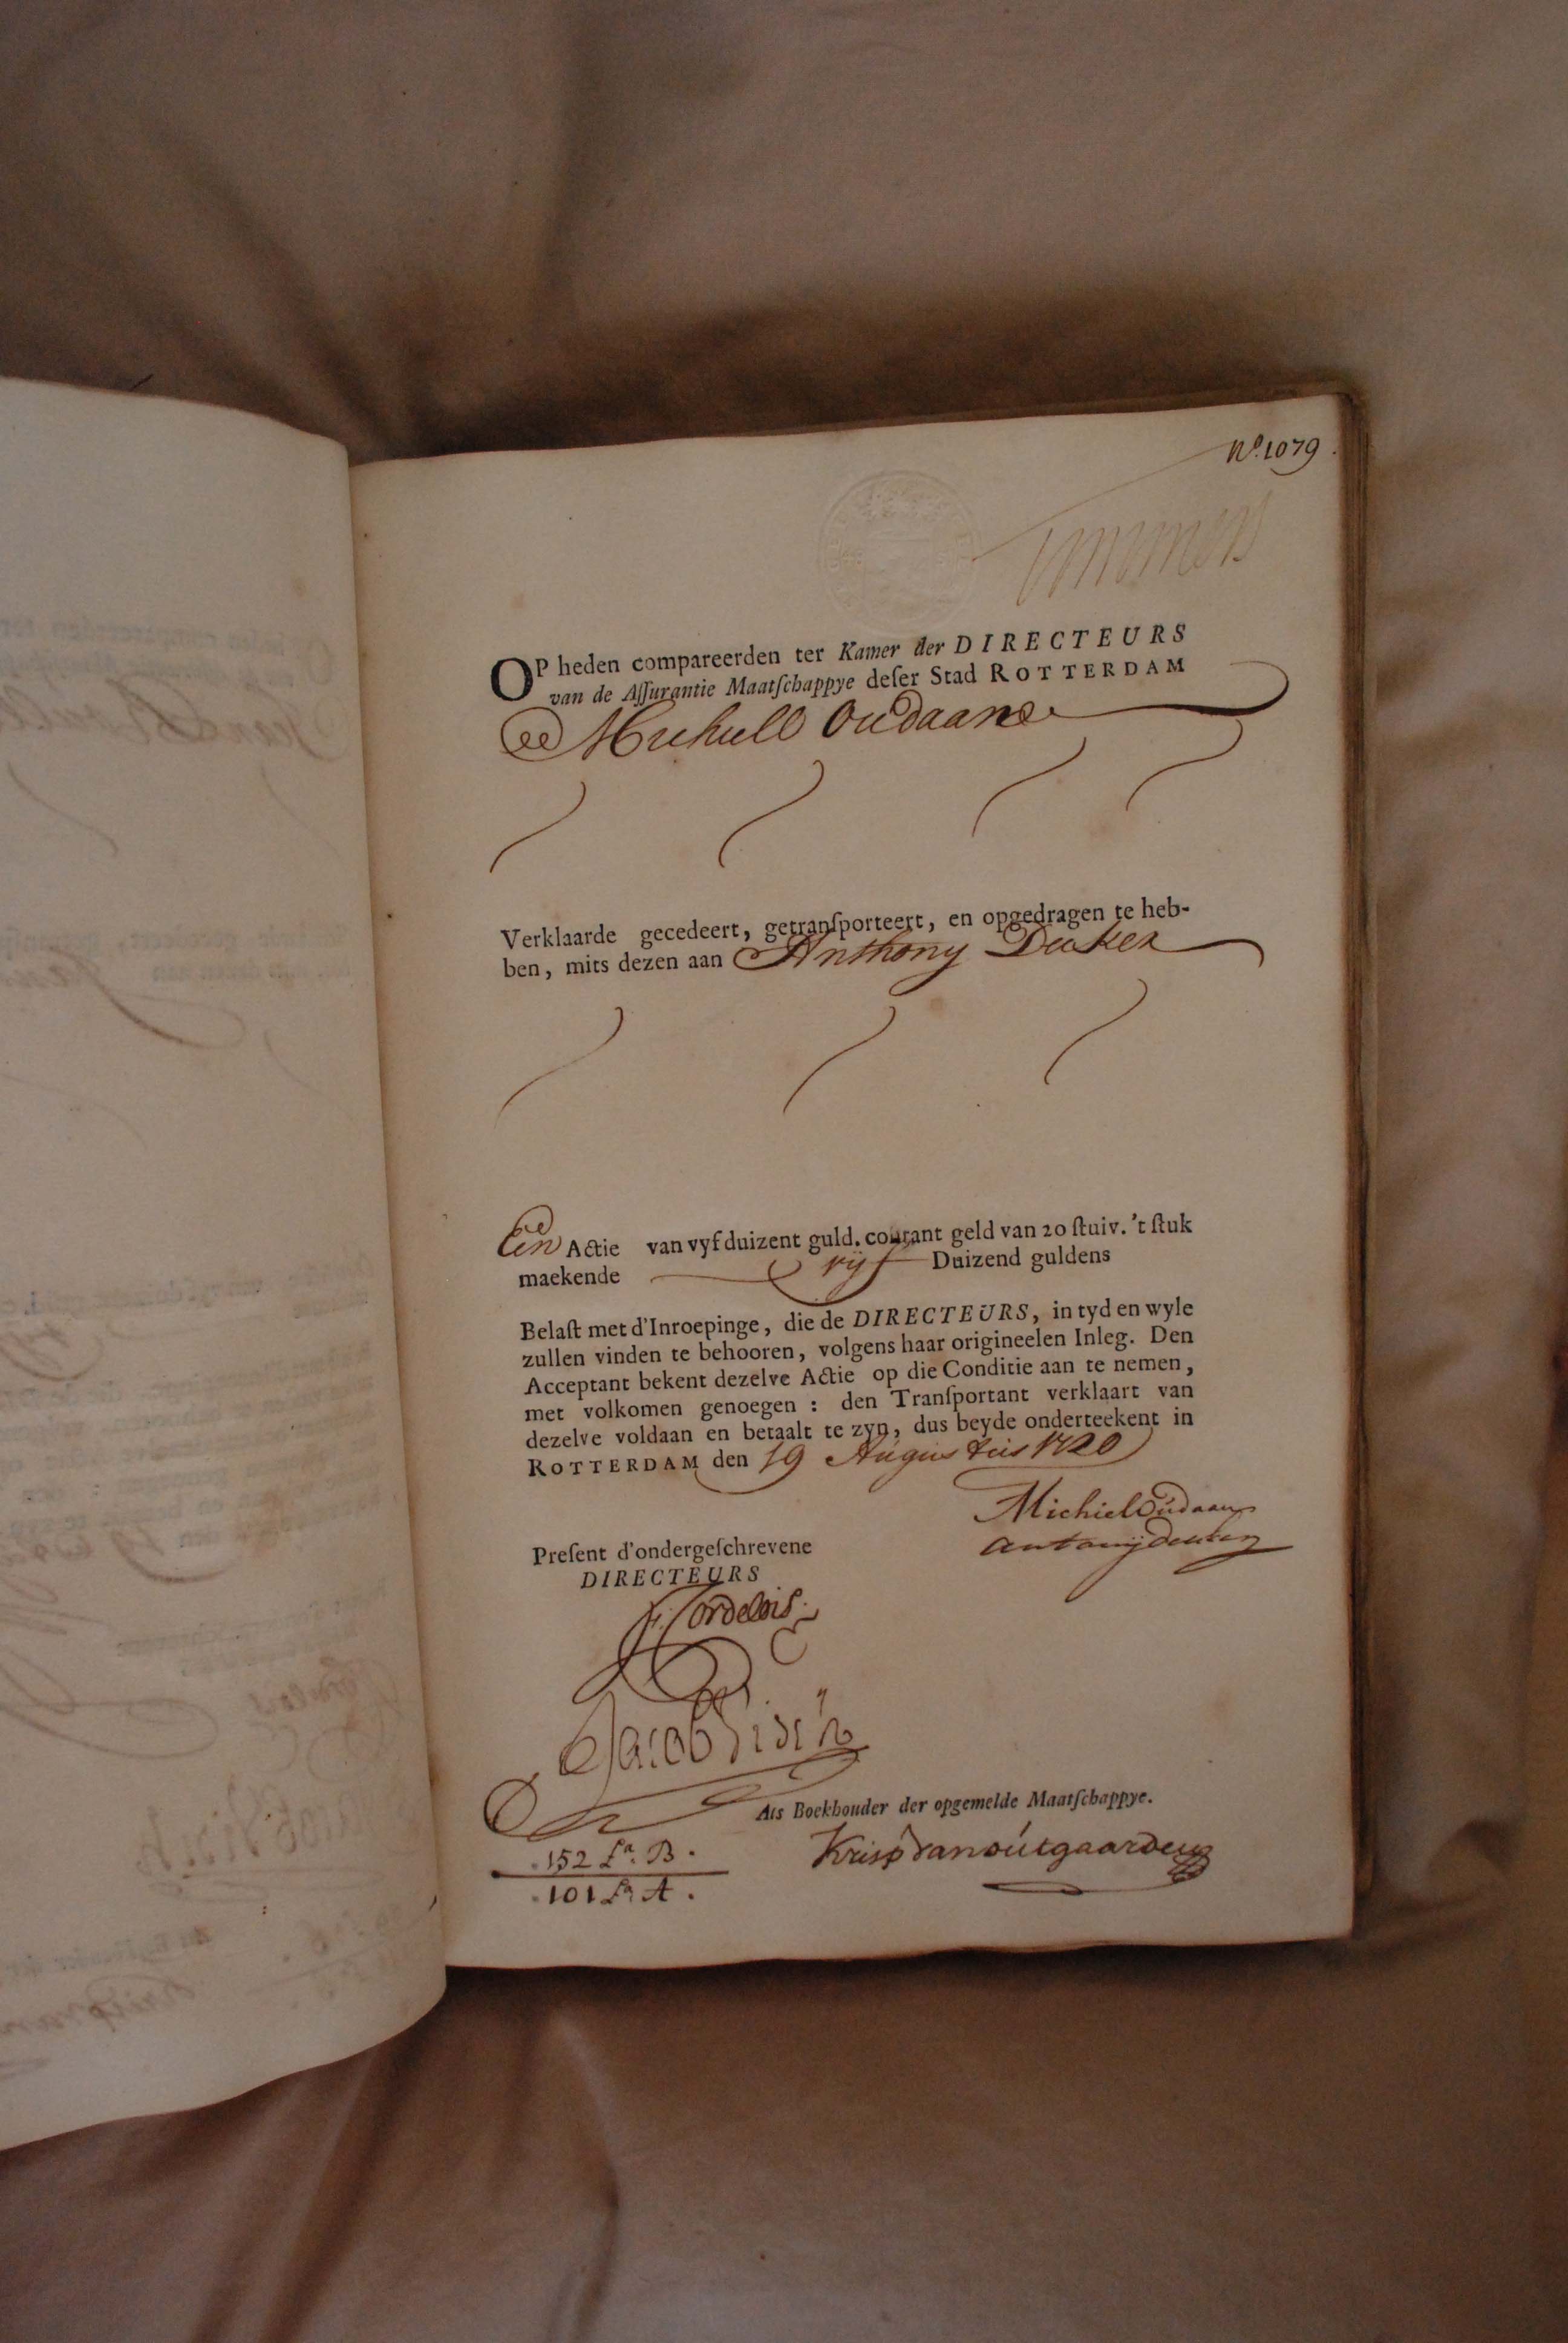 No. 1079.
OP heden compareerden ter Kamer der DIRECTEURS
van de Aſſurantie Maatſchappye deſer Stad ROTTERDAM
Michiell Oudaan
Verklaarde gecedeert, getranſporteert, en opgedragen te heb-
ben, mits dezen aan Anthony Deuker
Een Actie van vyf duizent guld. courant geld van 20 ſtuiv. 't ſtuk
maekende vyf Duizend guldens
Belaſt met d'Inroepinge, die de DIRECTEURS, in tyd en wyle
zullen vinden te behooren, volgens haar origineelen Inleg. Den
Acceptant bekent dezelve Actie op die Conditie aan te nemen,
met volkomen genoegen : den Tranſportant verklaart van
dezelve voldaan en betaalt te zyn, dus beyde onderteekent in
ROTTERDAM den 19 Augustus 1720
Michiel Oudaan
Antonij Deuker
Preſent d'ondergeſchrevene
DIRECTEURS
Cordelois
Jacob
Als Boekhouder der opgemelde Maatſchappye.
Krisp van outgaarden
152 La. B.
101 La. A.